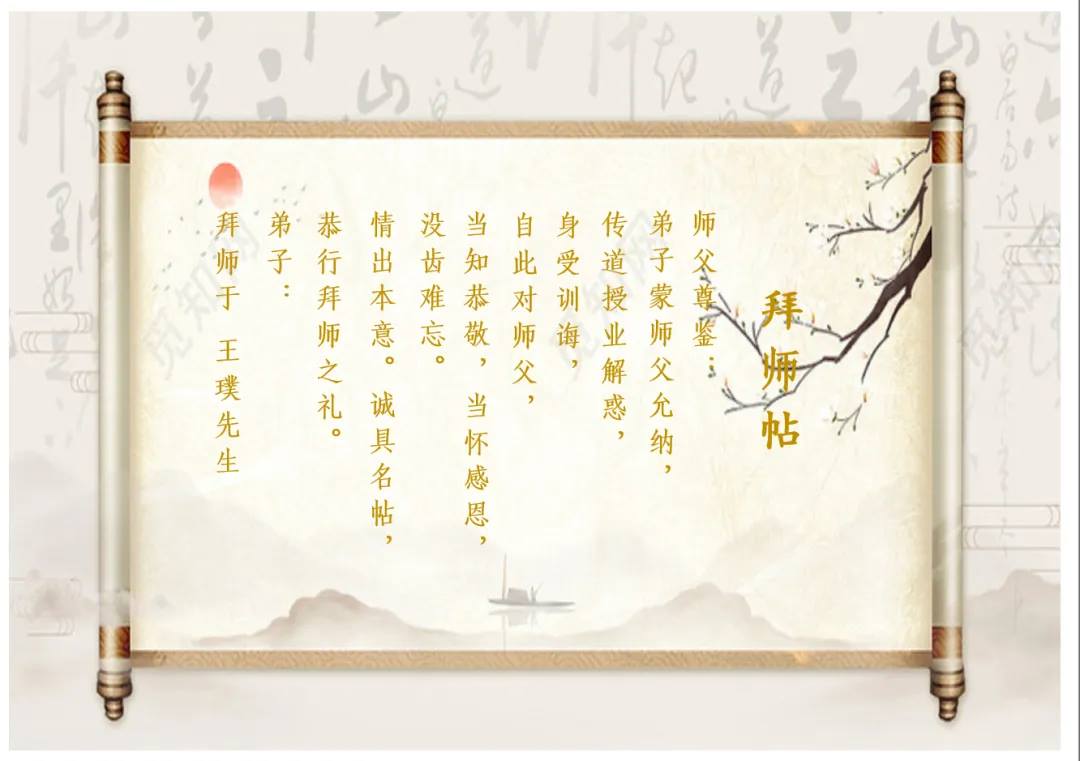 拜师帖
师父尊鉴：
弟子蒙师父允纳，
传道授业解惑，
身受训诲，
自此对师父，
当知恭敬，当怀感恩，
没齿难忘。
情出本意。诚具名帖，
恭行拜师之礼。
弟子：
拜师于 王璞先生
觅知网
觅知网